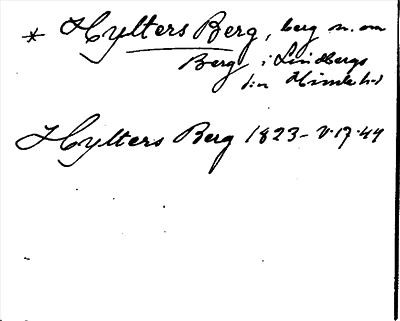 * Hylters Berg, berg n. om
Berg i Lindbergs
sn Himle hd
Hylters Berg 1823- V:17:44